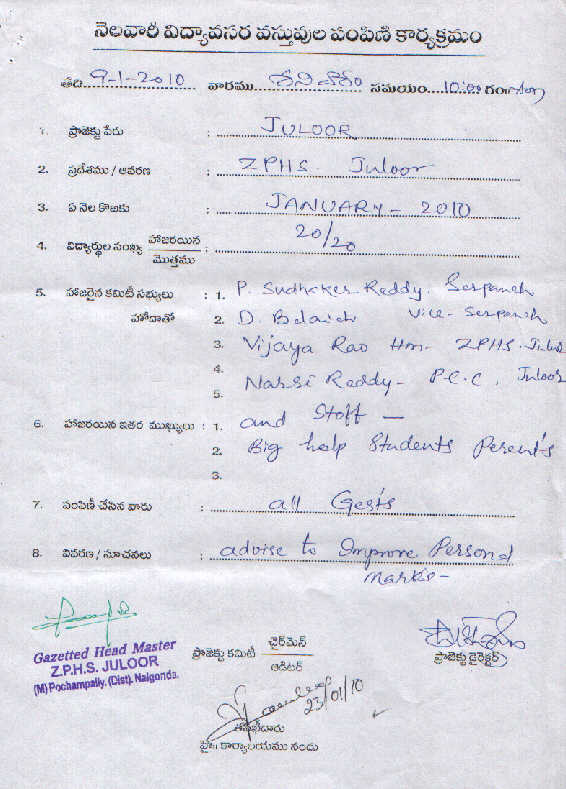 నెలవారీ విద్యావసర వస్తువుల పంపిణి కార్యక్రమం
తేది 9-1-2010 వారము శనివారం సమయం 10.00 గం
1. ప్రాజెక్టు పేరు : JULOOR
2. ప్రదేశము / ఆవరణ : ZPHS Juloor
3. ఏ నెల కొఱకు : JANUARY - 2010
4. విద్యార్థుల సంఖ్య హాజరయిన : 20/20
మొత్తము
5. హాజరైన కమిటీ సభ్యులు : 1. P. Sudhaker Reddy. Serpaneh
హోదాతో 2. D. Balaieh Vice- Serpaneh
3. Vijaya Rao Hm- ZPHS.
4.
Narsi Reddy- P.E.C, Juloor
5.
6. హాజరయిన ఇతర ముఖ్యులు : 1. and Stoff —
2. Big help Students Perent's
3.
7. పంపిణీ చేసిన వారు : all Gests
8. వివరణ / సూచనలు : advise to Improve Personal
marks-
Gazetted Head Master
Z.P.H.S. JULOOR
(M) Pochampally, (Dist). Nalgonda.
ప్రాజెక్టు కమిటీ ఛైర్‌మెన్
ఆడిటర్
ప్రాజెక్టు డైరెక్టర్
23/01/10
తనిఖీదారు
పైజ కార్యాలయము నందు